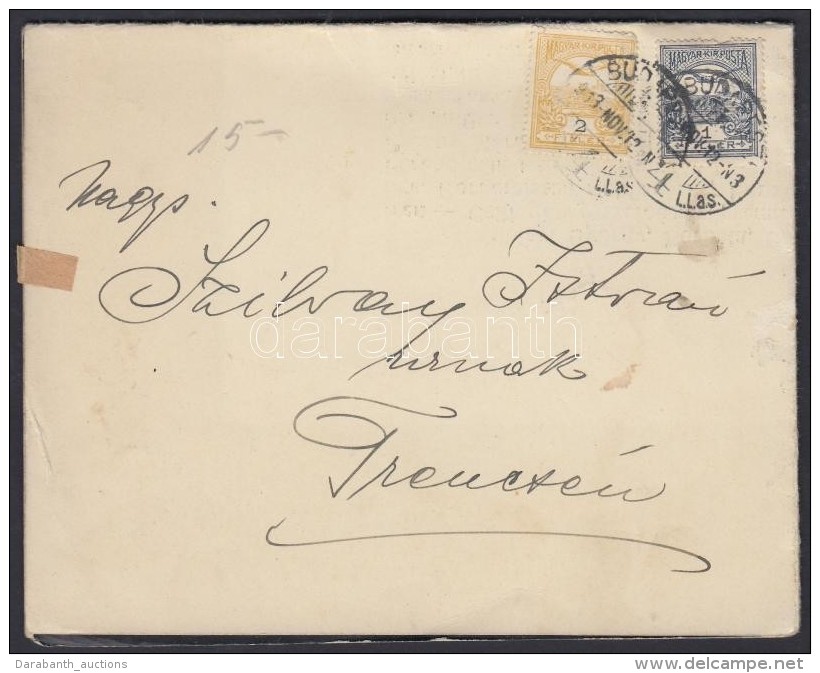 MAGYAR·KIR·POSTA
MAGYAR·KIR·POSTA
2
1
FILLÉR
BUDAPEST
4
L.L.a.s.
4
L.L.a.s.
15-
Nagys.
Szilvay István
urnak
Trencsén
darabanth
Darabanth_auctions
www.delcampe.net